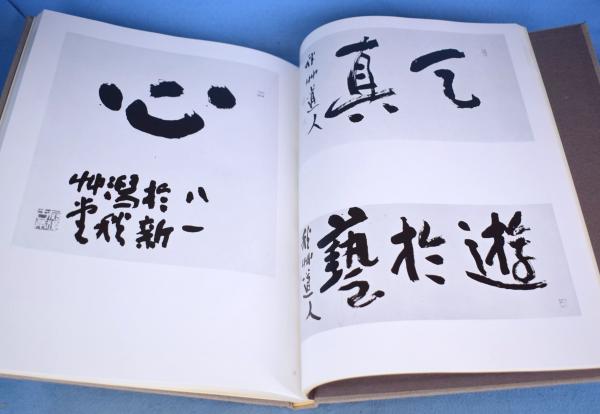 天真
秋艸道人
遊於藝
秋艸道人
心
八一
於新
潟秋
艸堂